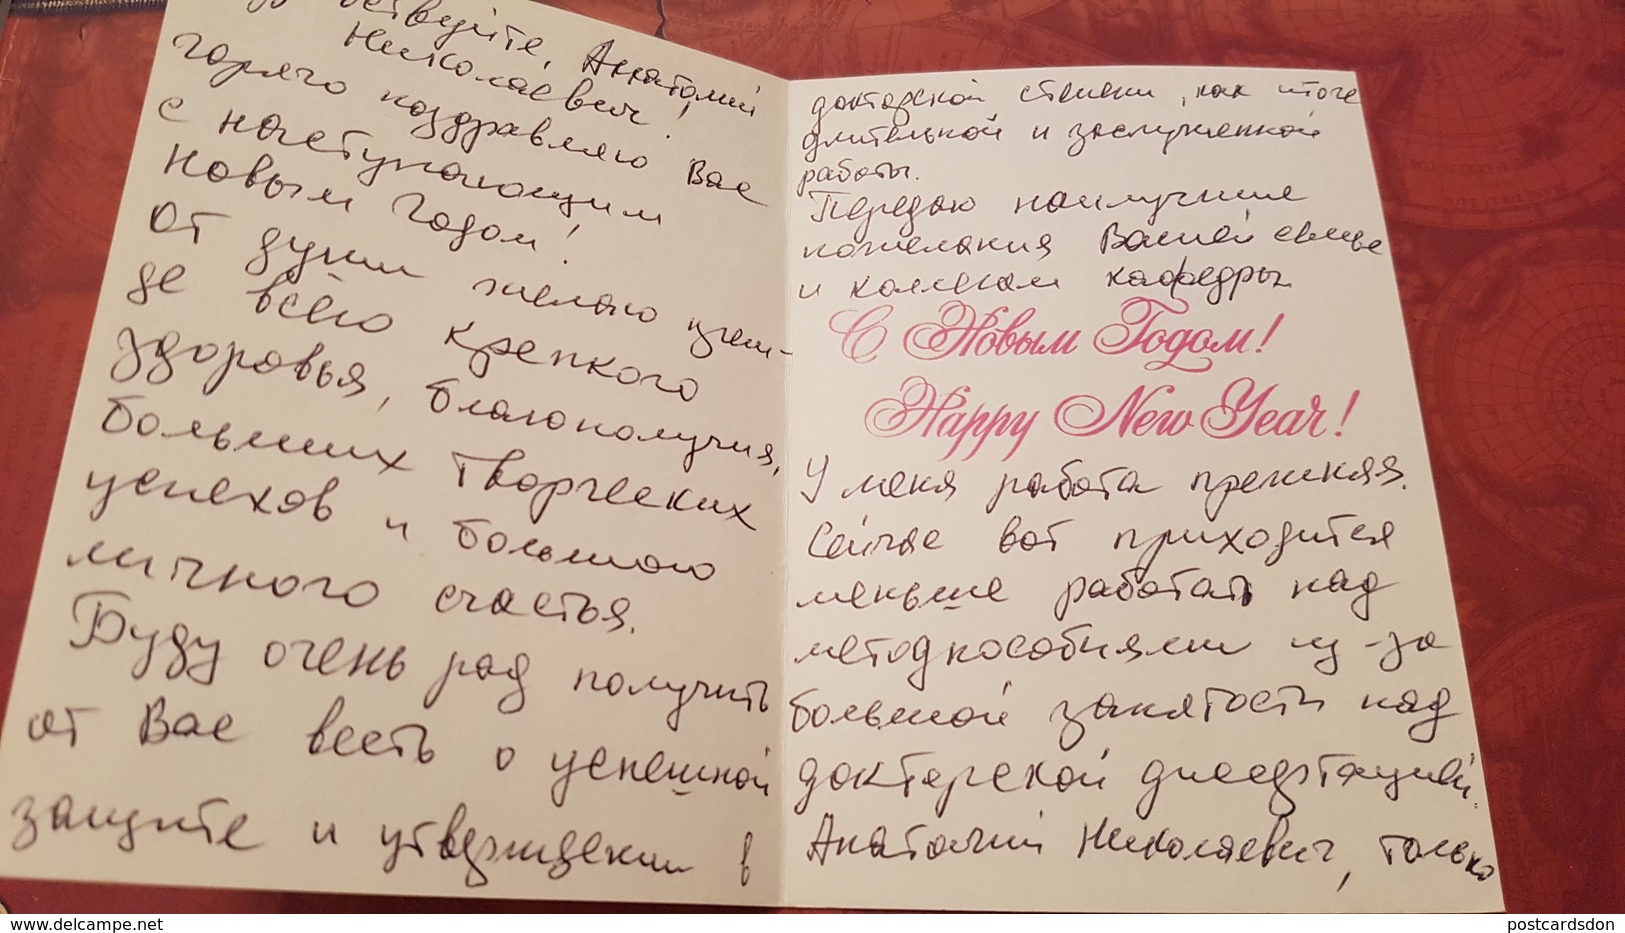 Анатолий
Николаевич!
горячо поздравляю Вас
с наступающим
Новым Годом!
От души желаю преж-
де всего крепкого
здоровья, благополучия,
больших творческих
успехов и большого
личного счастья.
Буду очень рад получить
от Вас весть о успешной
защите и утверждении в
докторской степени, как итоге
длительной и заслуженной
работы.
Передаю наилучшие
пожелания Вашей семье
и коллегам кафедры
С Новым Годом!
Happy New Year!
У меня работа прежняя.
Сейчас вот приходится
меньше работать над
методпособиями из-за
большой занятости над
докторской диссертацией.
Анатолий Николаевич, только
delcampe.net
postcardsdon